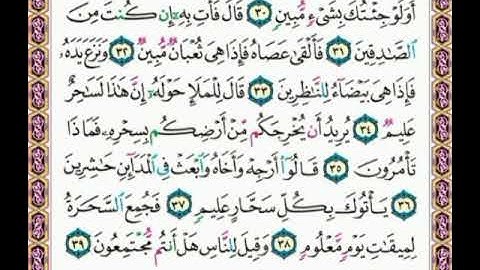 أَوَلَوْ جِئْتُكَ بِشَىْءٍ مُّبِينٍ ٣٠ قَالَ فَأْتِ بِهِۦٓ إِن كُنتَ مِنَ
ٱلصَّـٰدِقِينَ ٣١ فَأَلْقَىٰ عَصَاهُ فَإِذَا هِىَ ثُعْبَانٌ مُّبِينٌ ٣٢ وَنَزَعَ يَدَهُۥ
فَإِذَا هِىَ بَيْضَآءُ لِلنَّـٰظِرِينَ ٣٣ قَالَ لِلْمَلَإِ حَوْلَهُۥٓ إِنَّ هَـٰذَا لَسَـٰحِرٌ
عَلِيمٌ ٣٤ يُرِيدُ أَن يُخْرِجَكُم مِّنْ أَرْضِكُم بِسِحْرِهِۦ فَمَاذَا
تَأْمُرُونَ ٣٥ قَالُوٓا۟ أَرْجِهْ وَأَخَاهُ وَٱبْعَثْ فِى ٱلْمَدَآئِنِ حَـٰشِرِينَ
٣٦ يَأْتُوكَ بِكُلِّ سَحَّارٍ عَلِيمٍ ٣٧ فَجُمِعَ ٱلسَّحَرَةُ
لِمِيقَـٰتِ يَوْمٍ مَّعْلُومٍ ٣٨ وَقِيلَ لِلنَّاسِ هَلْ أَنتُم مُّجْتَمِعُونَ ٣٩